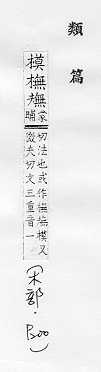 類篇
模橅
蒙晡切法也或作橅模又
微夫切文三重音一
(木部．Boo)